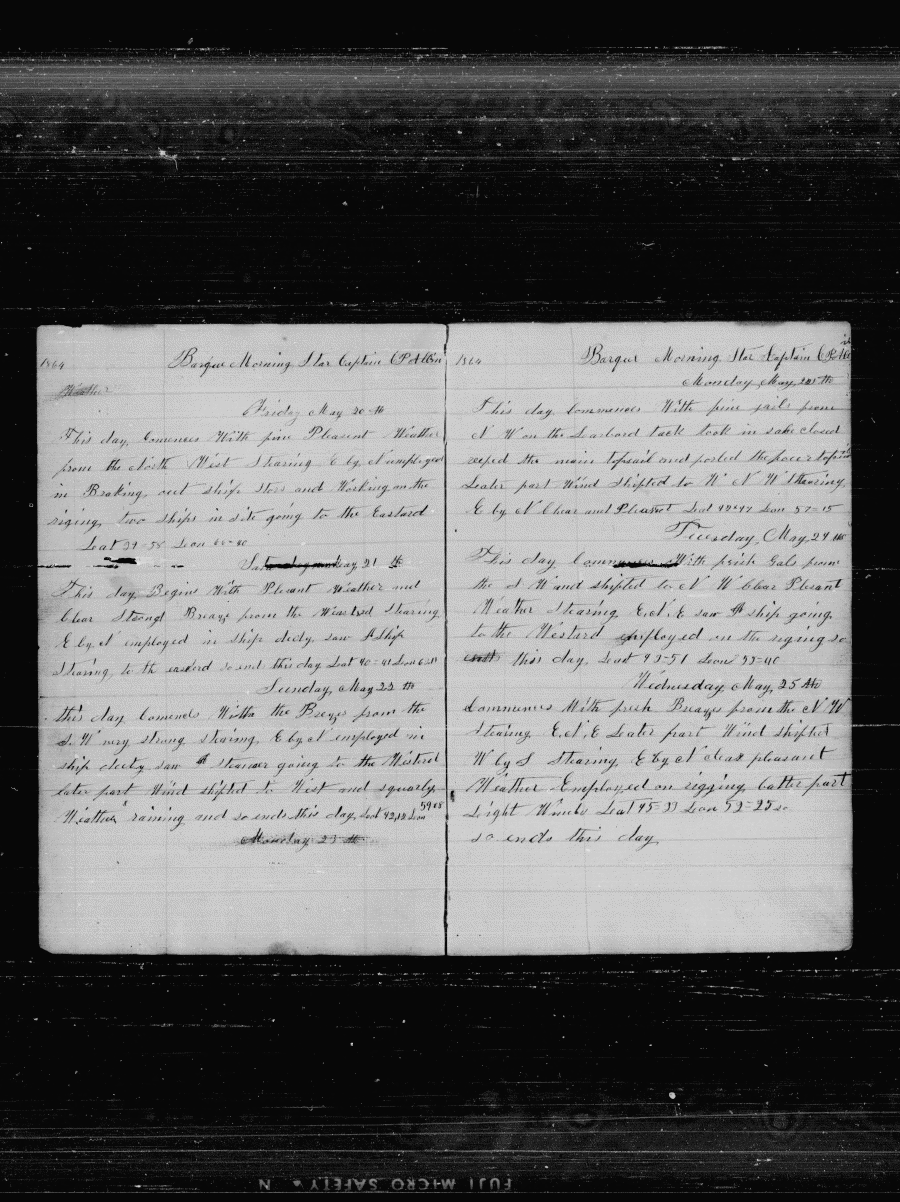 1864 Barque Morning Star Captain C P Allen
Weather
Friday May 20 th
This day, Comences With fine Pleasent Weather
from the North West Stearing E by N employed
in Braking out ship stors and Working on the
riging, two ships in site going to the Eastard
Lat 39-58 Lon
May 21 th
This day Begins With Plesant Weather and
Clear Strong Breaze from the Wearterd Stearing
E by N employed in ship duty saw A ship
Stearing to the easterd so end this day Lat 40-41 Lon
Sunday, May 22 th
this day Comends With the Breze from the
S. W very strong stearing, E by N employed in
ship duty saw A steamer going to the Westerd
later part Wind shifted to West and squarly,
Weather raining and so ends this day, Lat 42,12 Lon 59 08
Monday 23 th
1864 Barque Morning Star Captain C P
Monday May, th
This day Commences With fine gails from
N W on the Larbord tack took in sake closed
reefed the main topsail and forled the
Later part Wind Shifted to W N W Stearing,
E by N Clear and Pleasant Lat Lon 57-15
Tuesday, May 24 th
This day With frish Gals from
the N W and shifted to N W Clear Plesant
Weather Stearing E.N.E saw A ship going,
to the Westerd employed on the riging so
ends this day. Lat 43-51 Lon 55-40
Wednesday May, 25 th
Commences With fresh Breazes from the N W
Stearing E.N.E Later part Wind shifted
W by S Stearing, E by N clear pleasant
Weather Employed on rigging, latter part
Light Winds Lat 45-33 Lon 52-25 so
so ends this day
FUJI MICRO SAFETY N